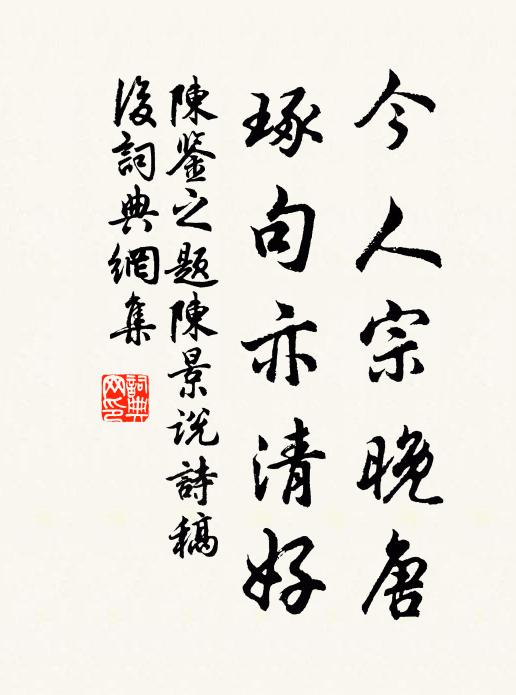 今人宗晚唐
琢句亦清好
陳鉴之題陳景說詩稿
後詞典網集
詞典
网印